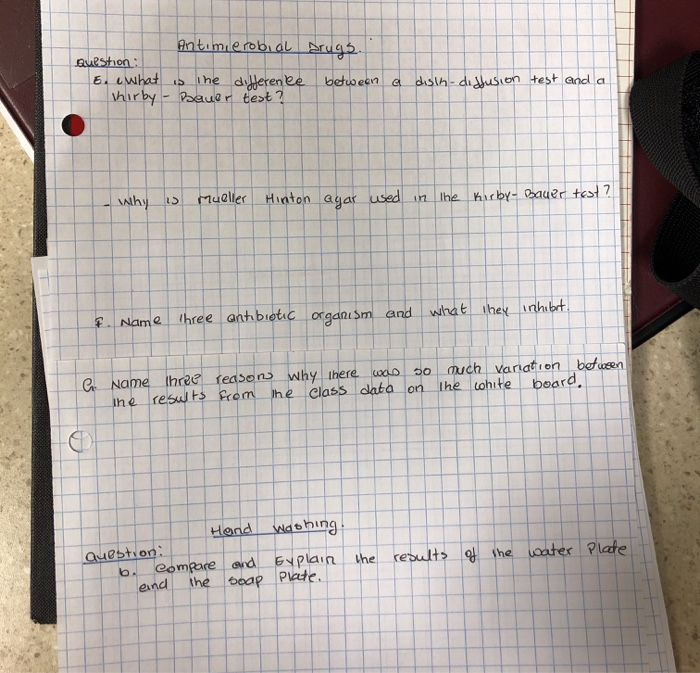 Antimicrobial Drugs.
Question:
E. What is the difference between a disk-diffusion test and a
Kirby-Bauer test?
- Why is Mueller Hinton agar used in the Kirby-Bauer test?
F. Name three antibiotic organism and what they inhibit.
G. Name three reasons why there was so much variation between
the results from the class data on the white board.
Hand Washing.
Question:
b. Compare and Explain the results of the water Plate
and the soap Plate.